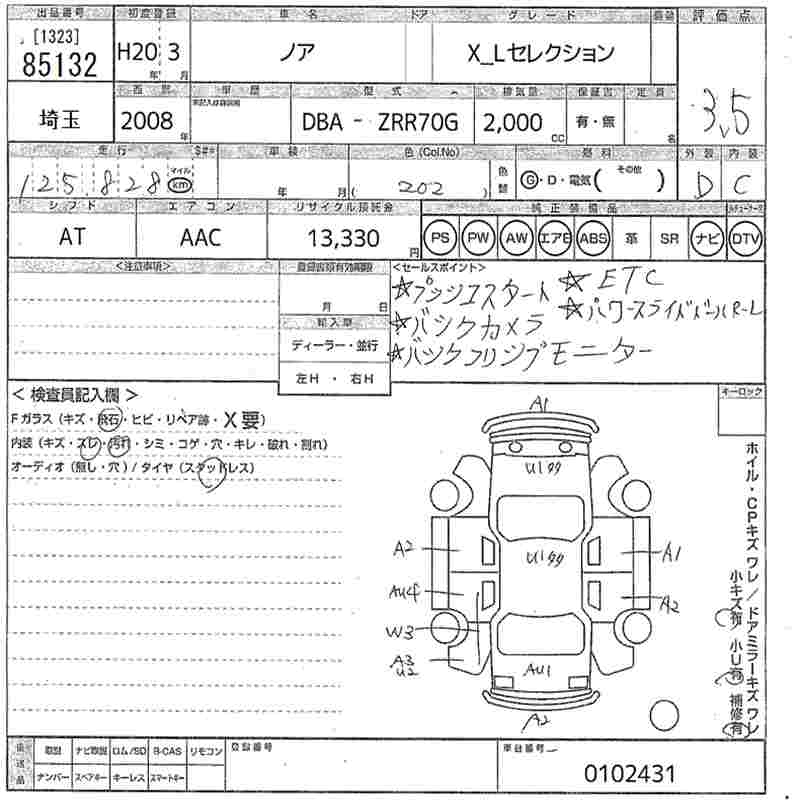 出品番号 初度登録 車名 ドア グレード 評価点
[1323]
85132 H20年 3月 ノア X_Lセレクション 3.5
西暦 車歴 型式 排気量 保証書 定員
埼玉 2008年 DBA - ZRR70G 2,000cc 有・無 名
走行 車検 色(Col.No) 色替 燃料 外装 内装
125,828 マイル km 年 月 ( 202 ) G・D・電気( その他 ) D C
シフト エアコン リサイクル預託金 純正装備品
AT AAC 13,330円 PS PW AW エアB ABS 革 SR ナビ DTV
<注意事項> 登録書類有効期限 <セールスポイント>
月 日
☆プッシュスタート ☆ETC
☆バックカメラ ☆パワースライドドアR-L
☆バックフリップモニター
輸入車
ディーラー・並行
左H・右H
キーロック
<検査員記入欄>
Fガラス(キズ・飛石・ヒビ・リペア跡・X要)
内装(キズ・スレ・汚れ・シミ・コゲ・穴・キレ・破れ・割れ)
オーディオ(無し・穴)/タイヤ(スタッドレス)
A1
U1 99
A2 U1 99 A1
AU4 A2
W3
A3 U2 AU1
A2
ホイル・CPキズ ワレ/ドアミラーキズ ワレ
小キズ有 小U有 補修有
後送品 取説 ナビ取説 ロム/SD B-CAS リモコン 登録番号 車台番号
ナンバー スペアキー キーレス スマートキー 0102431